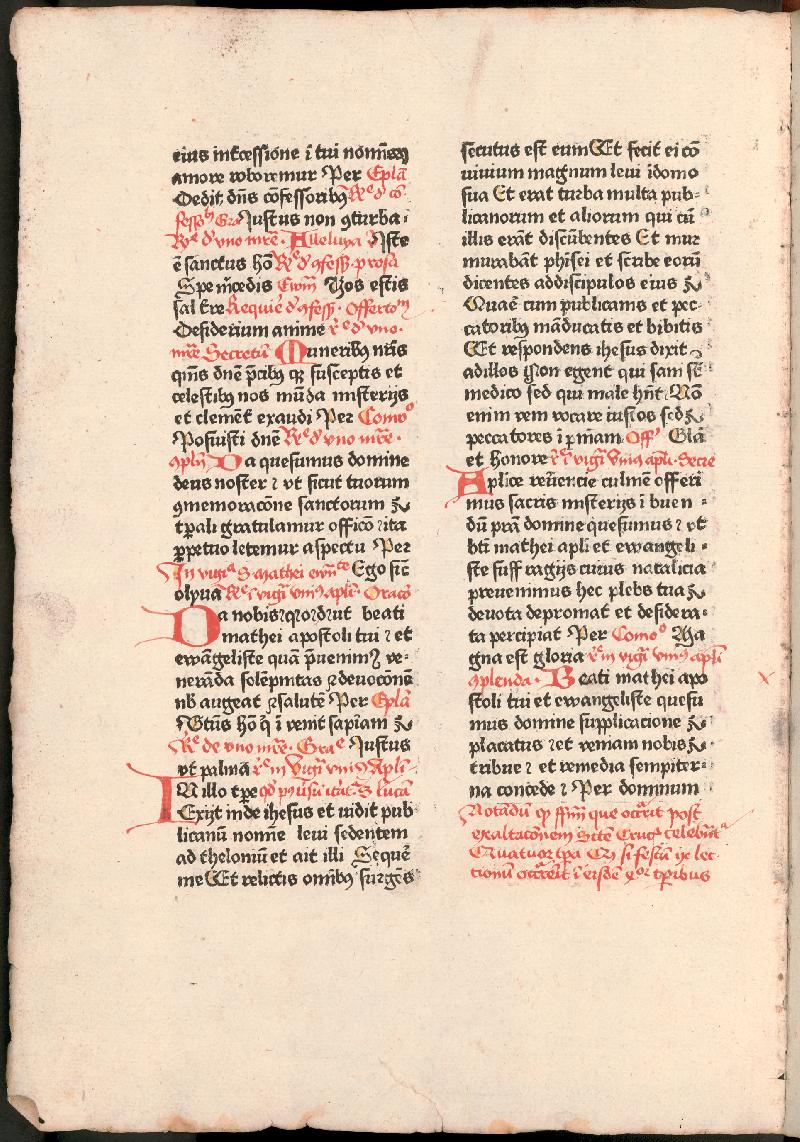 eius intcessione ī tui nominis
amore roboremur Per Eplā
Dedit dn̄s cōfessoribꝰ Re d cō
fessꝫ Gra Iustus non ꝯturba-
Re d vno mr̄e. Alleluya Iste
ē sanctus hō Re d ꝯfess. prosa
Spe m̄cedis Ewm̄ Vos estis
sal t̄re Require d ꝯfess. Offertom
Desiderium anime re d vno.
mr̄e Secretū Muneribꝰ nr̄is
qm̄s dn̄e p̄cibꝰ qꝫ susceptis et
celestibꝰ nos mūda misterijs
et clemēt exaudi Per Como
Posuisti dn̄e Re d vno mr̄e.
ꝯpln̄ Da quesumus domine
deus noster ⁊ vt sicut tuorum
ꝯmemoracōne sanctorum
tꝑali gratulamur officō ita
ꝑpetuo letemur aspectu Per
In vigia S mathei ewn̄te Ego sic̄
olyua Re ī vigi vniꝰ apli. Oracō
Da nobis qs o d ut beati
mathei apostoli tui ⁊ et
ewāgeliste quā p̄uenimꝰ ve-
nerāda solēpnitas ⁊ deuocōnē
nb̄ augeat ⁊ salutē Per Eplā
hō q̄ ī venit sapīam
Re de vno mr̄e. Grae Iustus
vt palma re in vigi vniꝰ Apli
IN illo tp̄e S lucā
Exijt inde ihesus et vidit pub
licanū nomīe leui sedentem
ad theloniū et ait illi Sequē
me Et relictis omībꝰ surgēs
secutus est eum Et fecit ei cō
uiuium magnum leui ī domo
sua Et erat turba multa pub-
licanorum et aliorum qui cū
illis erāt discūbentes Et mur
murabāt phisei et scribe eorū
dicentes ad discipulos eius
Quaē cum publicanis et pec-
catoribꝰ māducatis et bibitis
Et respondens ihesus dixit
ad illos Non egent qui sani sūt
medico sed qui male hn̄t Nō
enim veni vocare iustos sed
peccatores ī pn̄iam Off Gl̄a
et honore re ī vigi vniꝰ apli. Secre
Aplice reūencie culmē offeri
mus sacris misterijs ī buen-
dū pr̄a domine quesumus ⁊ vt
bt̄i mathei apli et ewangeli-
ste suffragijs cuius natalicia
preuenimus hec plebs tua
deuota depromat et desidera-
ta percipiat Per Como Ma
gna est gloria re in vigi vniꝰ apli
ꝯplenda. Beati mathei apo
stoli tui et ewangeliste quesu
mus domine supplicacione
placatus ⁊ et veniam nobis
tribue ⁊ et remedia sempiter-
na concede ⁊ Per dominum
Notandū ꝙ que occ̄rit post
exaltacōnem Sc̄te Crucꝭ celebrāt
Quatuor tp̄a si festū ix lec-
tionū occ̄rit ī eisdē qor tꝑibus